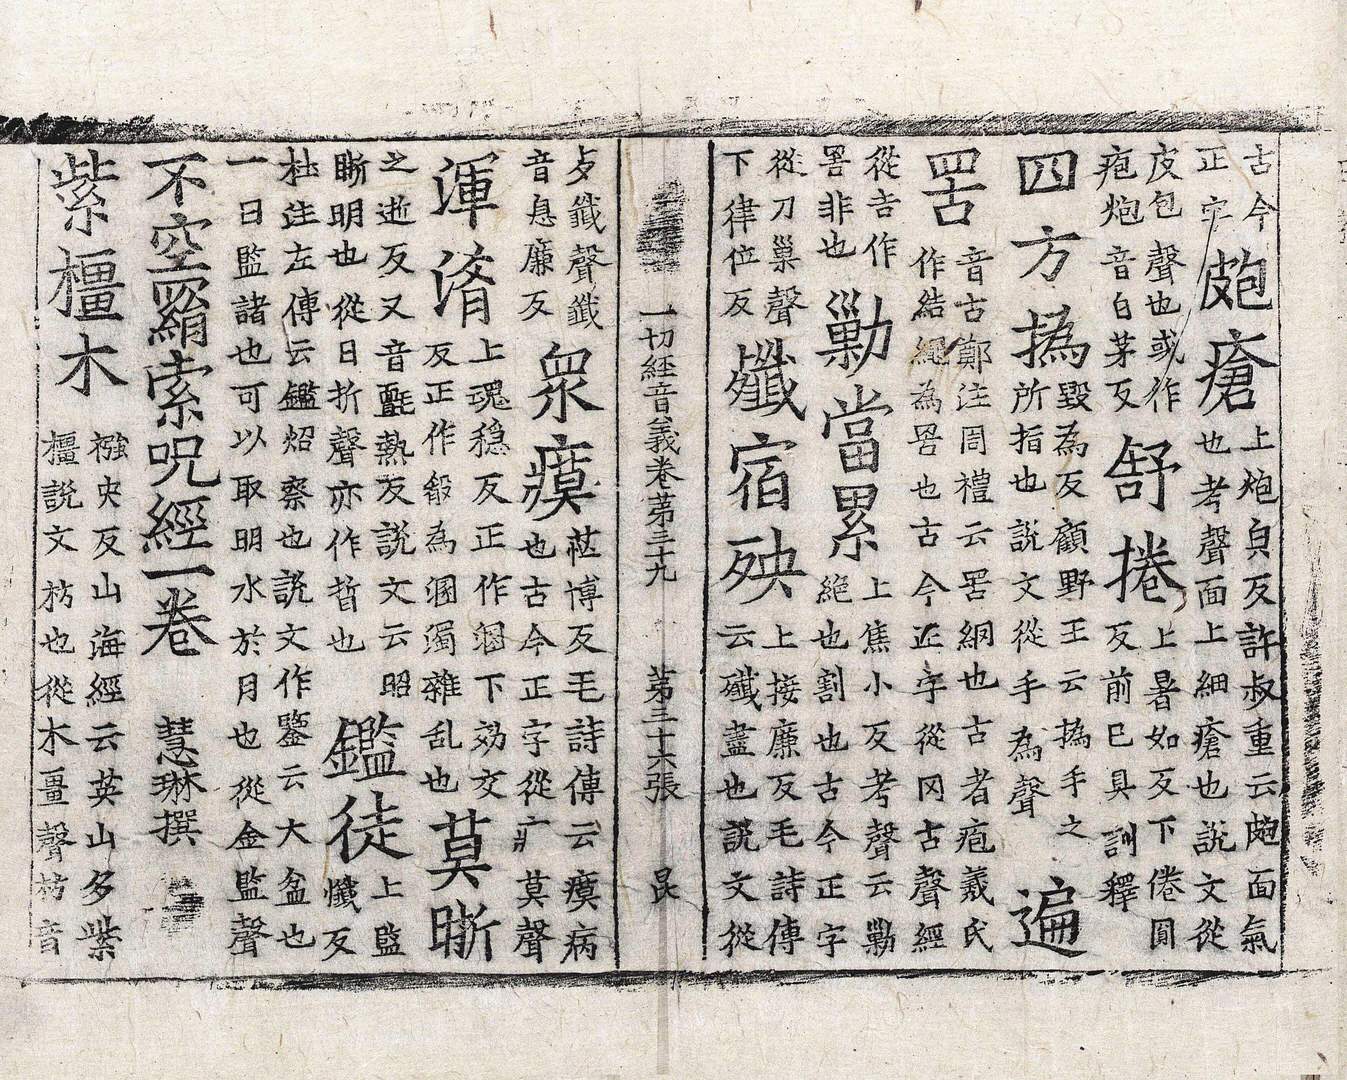 古今
正字
皰瘡
上炮皃反許叔重云皰面氣
也考聲面上細瘡也說文從
皮包聲也或作
疱炮音白茅反
舒捲
上暑如反下倦圓
反前已具訓釋
四方撝
毀為反顧野王云撝手之
所指也說文從手為聲
遍
罟
音古鄭注周禮云罟網也古者疱羲氏
作結繩為罟也古今正字從网古聲經
從吉作
罟非也
勦當累
上焦小反考聲云勦
絕也割也古今正字
從刀巢聲
下律位反
殲宿殃
上接廉反毛詩傳
云殲盡也說文從
一切經音義卷第三十九 第三十六張 昆
歹韱聲韱
音息廉反
眾瘼
博反毛詩傳云瘼病
也古今正字從疒莫聲
渾淆
上魂穩反正作溷下効交
反正作殽為溷濁雜乱也
莫晣
之逝反又音氈熱反說文云昭
晣明也從日折聲亦作晢也
鑑徒
上監
懺反
杜注左傳云鑑炤察也說文作鑒云大盆也
一曰監諸也可以取明水於月也從金監聲
不空羂索呪經一卷 慧琳撰
紫橿木
襁央反山海經云英山多紫
橿說文枋也從木畺聲枋音